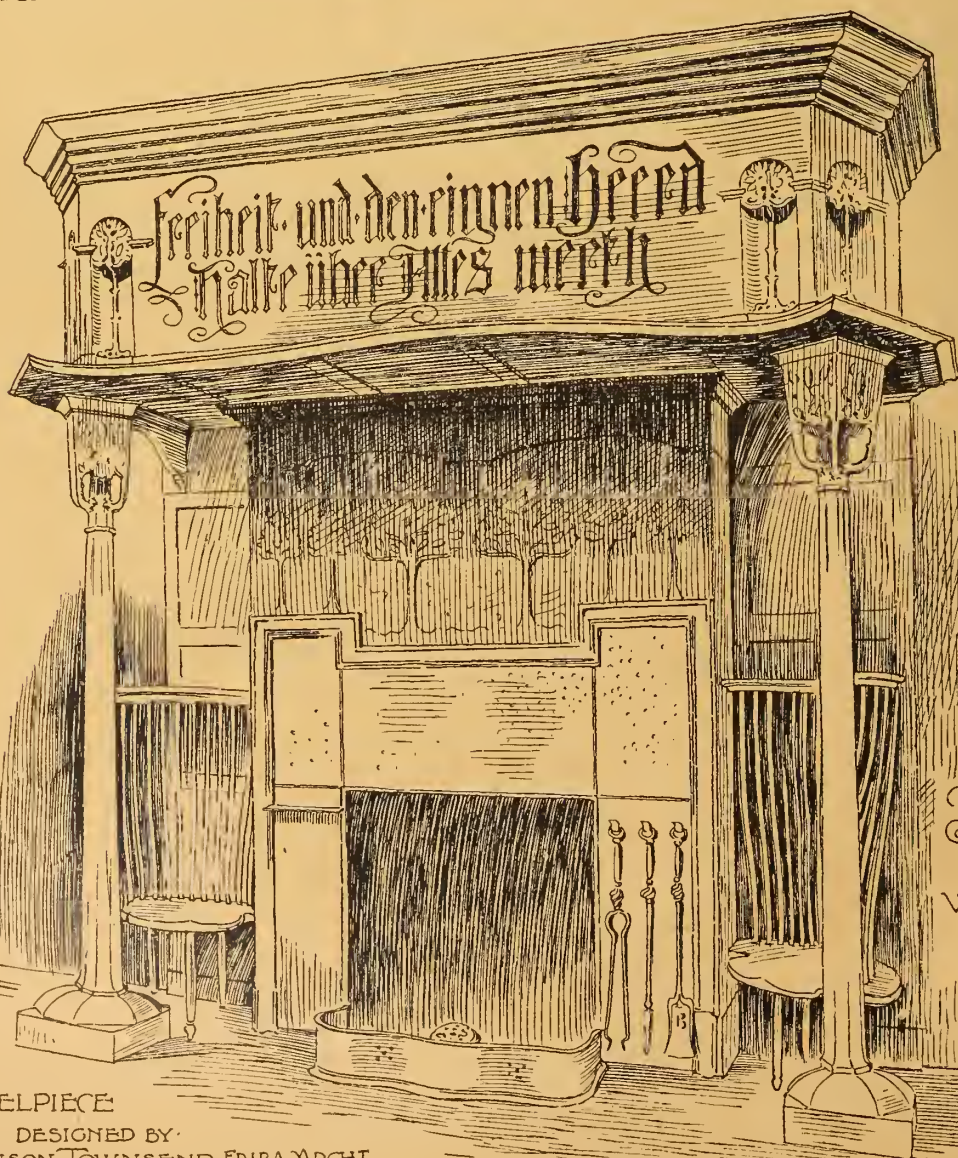 Freiheit · und · den · eignen Heerd
Halte über Alles werth
ELPIECE
DESIGNED BY·
SON TOWNSEND F.R.I.B.A. ARCHT